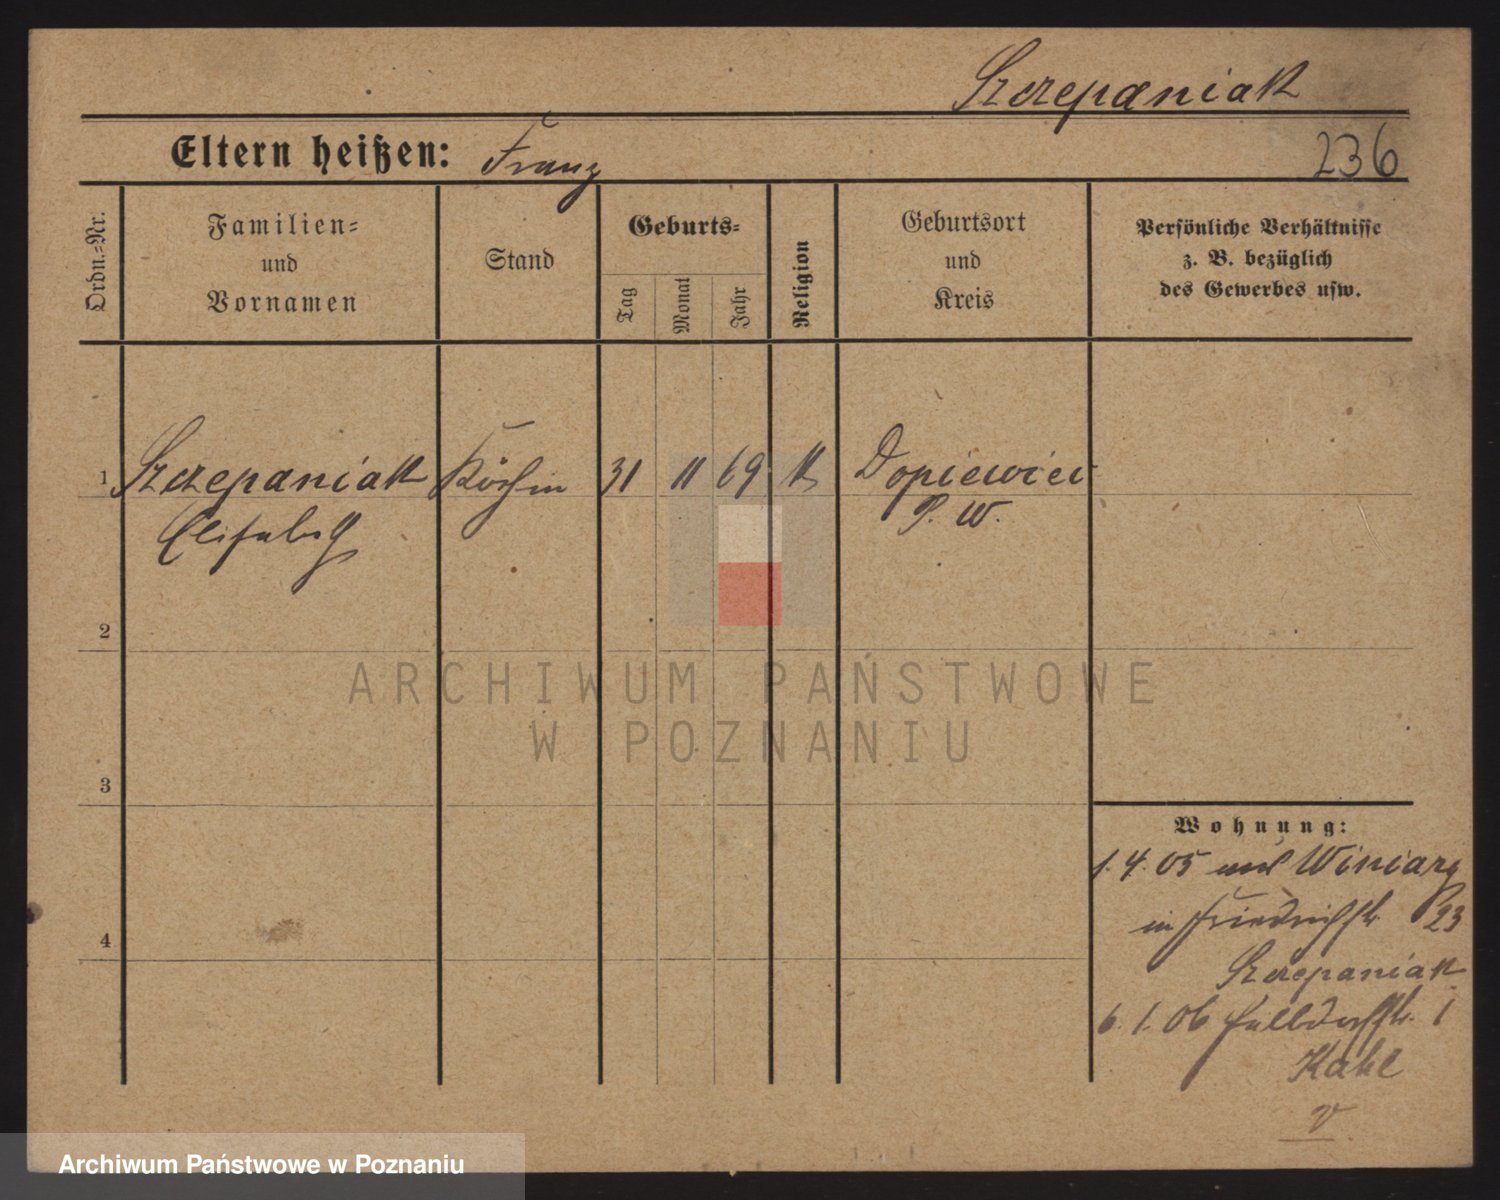 Szczepaniak
Eltern heißen: Franz
236
Ordn.-Nr.
Familien-
und
Vornamen
Stand
Geburts-
Tag
Monat
Jahr
Religion
Geburtsort
und
Kreis
Persönliche Verhältnisse
z. B. bezüglich
des Gewerbes usw.
1 Szczepaniak Köchin 31 11 69 K Dopiewiec
Elisabeth P. W.
2
3
4
Wohnung:
1. 4. 05 aus Winiary
in Friedrichstr. 23
Szczepaniak
6. 1. 06 1
Kahl
v
ARCHIWUM PAŃSTWOWE
W POZNANIU
Archiwum Państwowe w Poznaniu